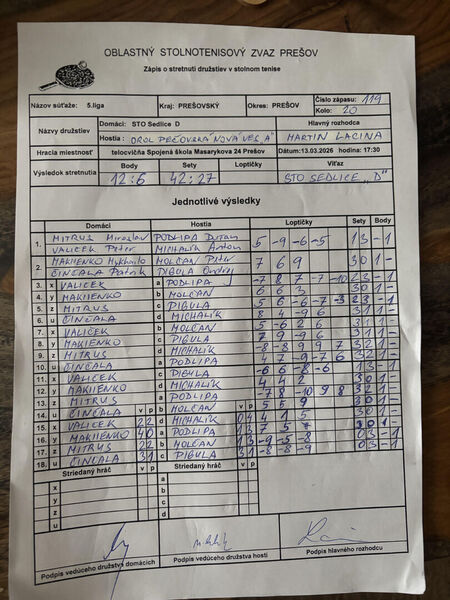 OBLASTNÝ STOLNOTENISOVÝ ZVAZ PREŠOV
Zápis o stretnutí družstiev v stolnom tenise
Názov súťaže: 5.liga Kraj: PREŠOVSKÝ Okres: PREŠOV Číslo zápasu: 119
Kolo: 20
Názvy družstiev Domáci: STO Sedlice D Hlavný rozhodca
Hostia: OROL PEČOVSKÁ NOVÁ VES „A" MARTIN LACINA
Hracia miestnosť telocvičňa Spojená škola Masarykova 24 Prešov Dátum:13.03.2026 hodina: 17:30
Výsledok stretnutia Body Sety Loptičky Víťaz
12:6 42:27 STO SEDLICE „D"
Jednotlivé výsledky
Domáci Hostia Loptičky Sety Body
1. MITRUS Miroslav PODLIPA 5 -9 -6 -5 1 3 - 1
VALICEK Peter MICHALÍK Anton
2. MAKIIENKO Mykhailo MOLČAN Peter 7 6 9 3 0 1 -
ČINČALA Patrik PIGULA Ondrej
3. x VALICEK a PODLIPA -7 8 7 -7 -10 2 3 - 1
4. y MAKIIENKO b MOLČAN 6 6 3 3 0 1 -
5. z MITRUS c PIGULA 5 6 -6 -7 -3 2 3 - 1
6. u ČINČALA d MICHALÍK 8 4 -9 6 3 1 1 -
7. x VALICEK b MOLČAN 5 -6 2 6 3 1 1 -
8. y MAKIIENKO c PIGULA
9. z MITRUS d MICHALÍK -8 -8 9 9 7 3 2 1 -
10. u ČINČALA a PODLIPA 4 7 -9 -7 6 3 2 1 -
11. x VALICEK c PIGULA -6 6 -8 -6 1 3 - 1
12. y MAKIIENKO d MICHALÍK 4 4 2 3 0 1 -
13. z MITRUS a PODLIPA
14. u ČINČALA v p b MOLČAN v p 5 6 9 3 0 1 -
15. x VALICEK 2 2 d MICHALÍK 4 1 5 3 0 1 -
16. y MAKIIENKO 4 0 a PODLIPA 7 5
17. z MITRUS 2 2 b MOLČAN -9 -5 -8 0 3 - 1
18. u ČINČALA 3 1 c PIGULA 3 1 -8 -8 -9 0 3 - 1
Striedaný hráč v p Striedaný hráč v p
x a
y b
z c
u d
Podpis vedúceho družstva domácich Podpis vedúceho družstva hostí Podpis hlavného rozhodcu